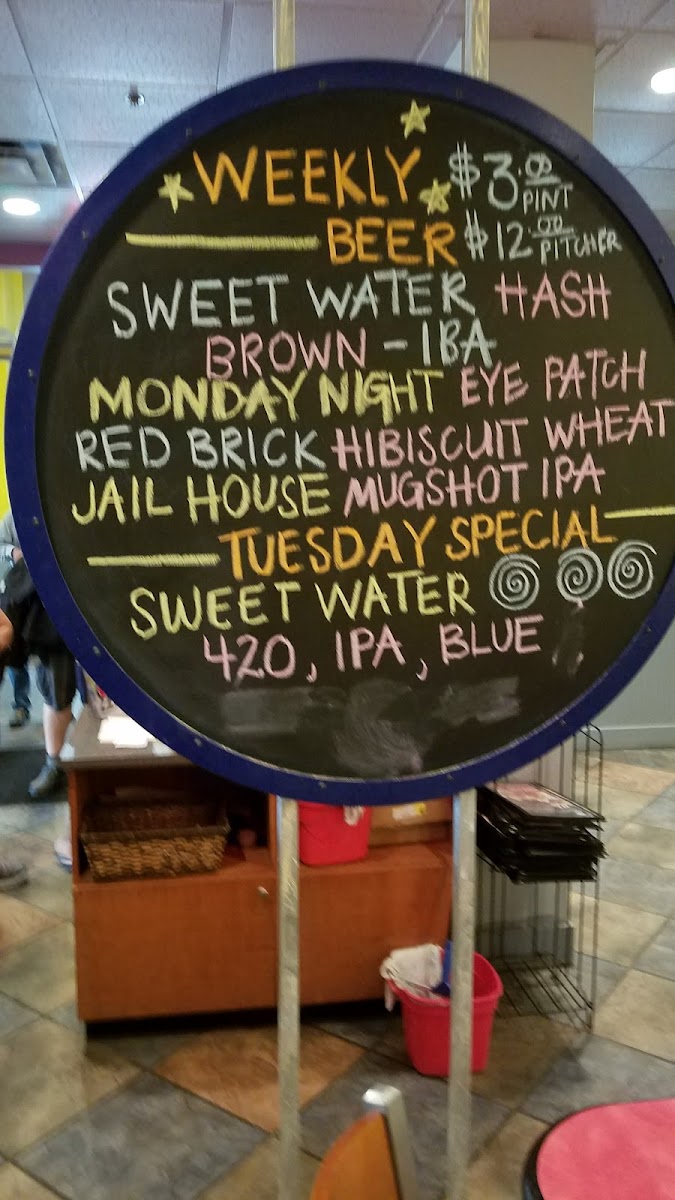 WEEKLY $3.00 PINT
BEER $12.00 PITCHER
SWEET WATER HASH
BROWN - IBA
MONDAY NIGHT EYE PATCH
RED BRICK HIBISCUIT WHEAT
JAIL HOUSE MUGSHOT IPA
TUESDAY SPECIAL
SWEET WATER
420, IPA, BLUE